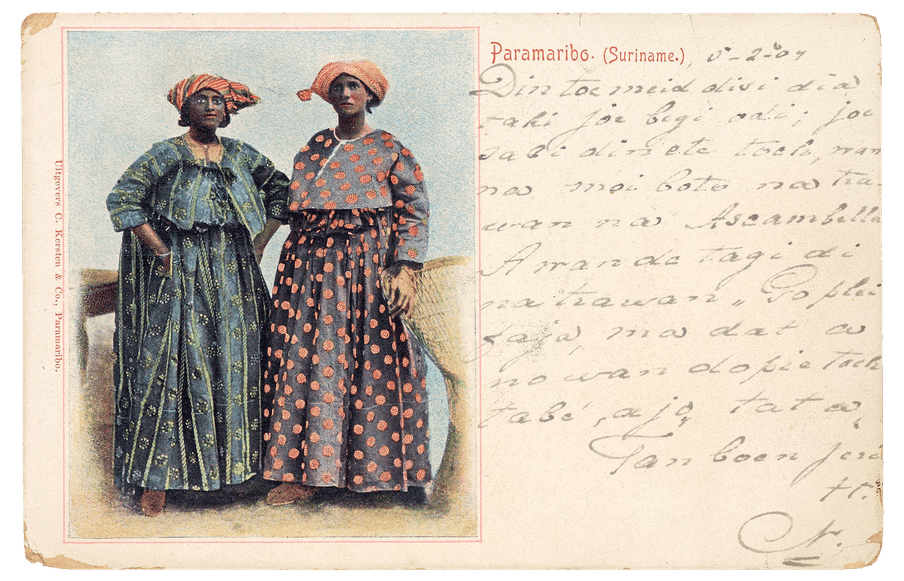 Uitgevers C. Kersten & Co., Paramaribo.
Paramaribo. (Suriname.) 5-2-04
Din toe meid disi dia
taki joe begi odi; joe
sabi din ete toch, wan
na moi boto na tra-
wan na
A wan de tagi di
na trawan „Go plei
faja, ma dat a
no wan dopie toch
tabé, ajo, tat a,
Tan boen
N.